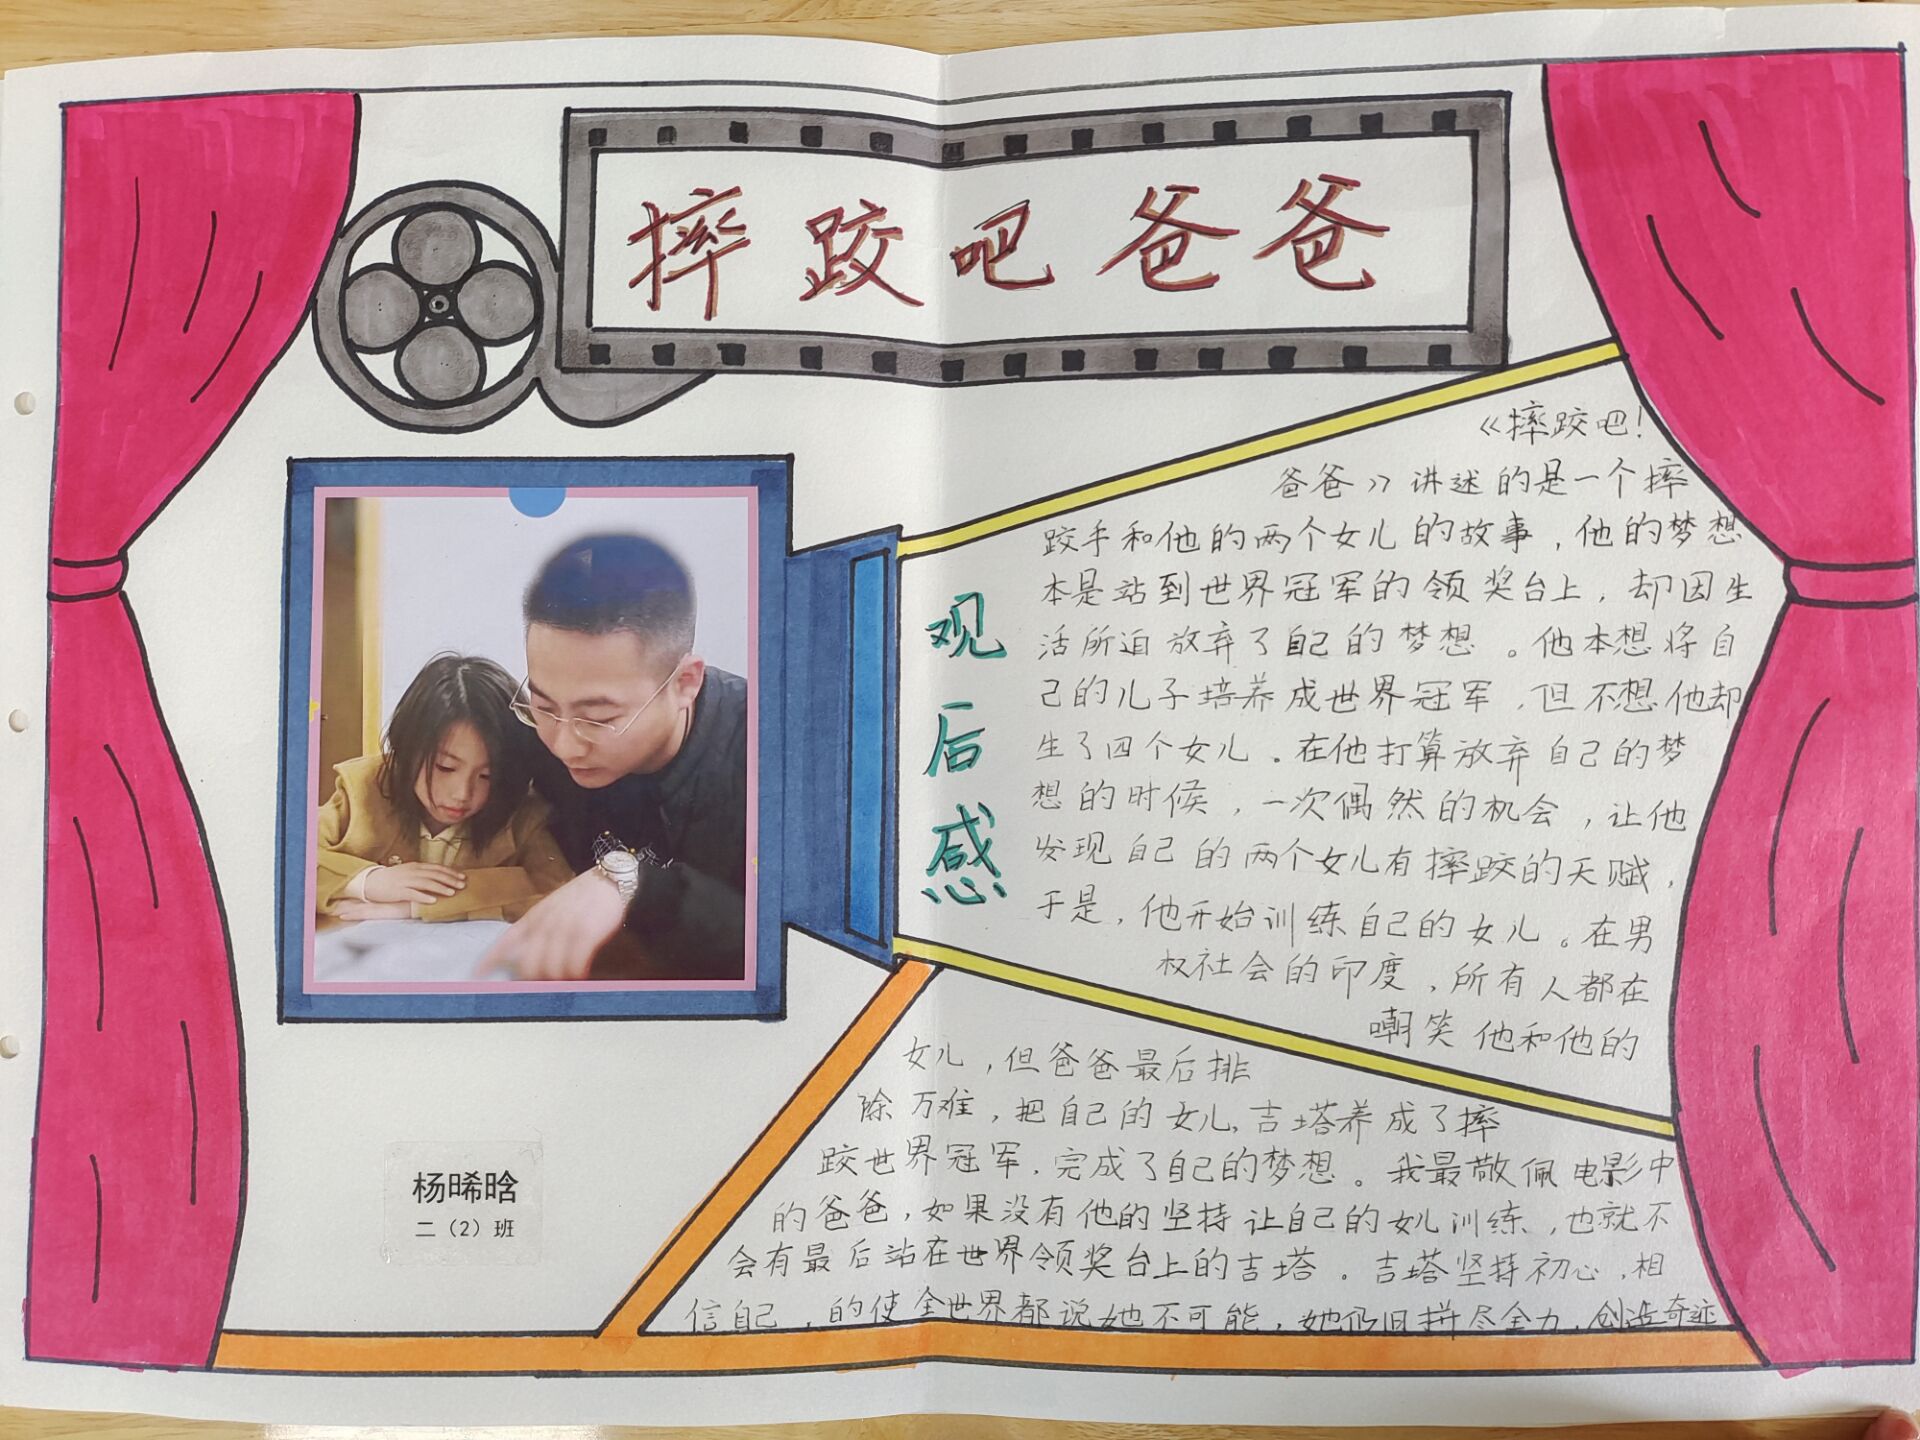 摔跤吧爸爸
观后感
《摔跤吧！
爸爸》讲述的是一个摔
跤手和他的两个女儿的故事，他的梦想
本是站到世界冠军的领奖台上，却因生
活所迫放弃了自己的梦想。他本想将自
己的儿子培养成世界冠军，但不想他却
生了四个女儿。在他打算放弃自己的梦
想的时候，一次偶然的机会，让他
发现自己的两个女儿有摔跤的天赋，
于是，他开始训练自己的女儿。在男
权社会的印度，所有人都在
嘲笑他和他的
女儿，但爸爸最后排
除万难，把自己的女儿吉塔养成了摔
跤世界冠军，完成了自己的梦想。我最敬佩电影中
的爸爸，如果没有他的坚持让自己的女儿训练，也就不
会有最后站在世界领奖台上的吉塔。吉塔坚持初心，相
信自己，的使全世界都说她不可能，她仍旧拼尽全力，创造奇迹
杨晞晗
二（2）班